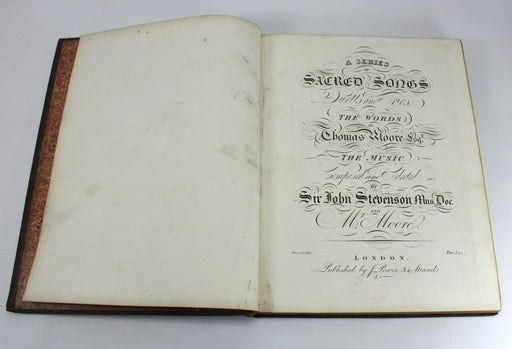 A SERIES
OF
SACRED SONGS,
Duetts and Trios,
THE WORDS
BY
Thomas Moore Esqr.
THE MUSIC
Composed and Selected
BY
Sir John Stevenson Mus. Doc.
AND
Mr. Moore
LONDON,
Published by J. Power, 34 Strand